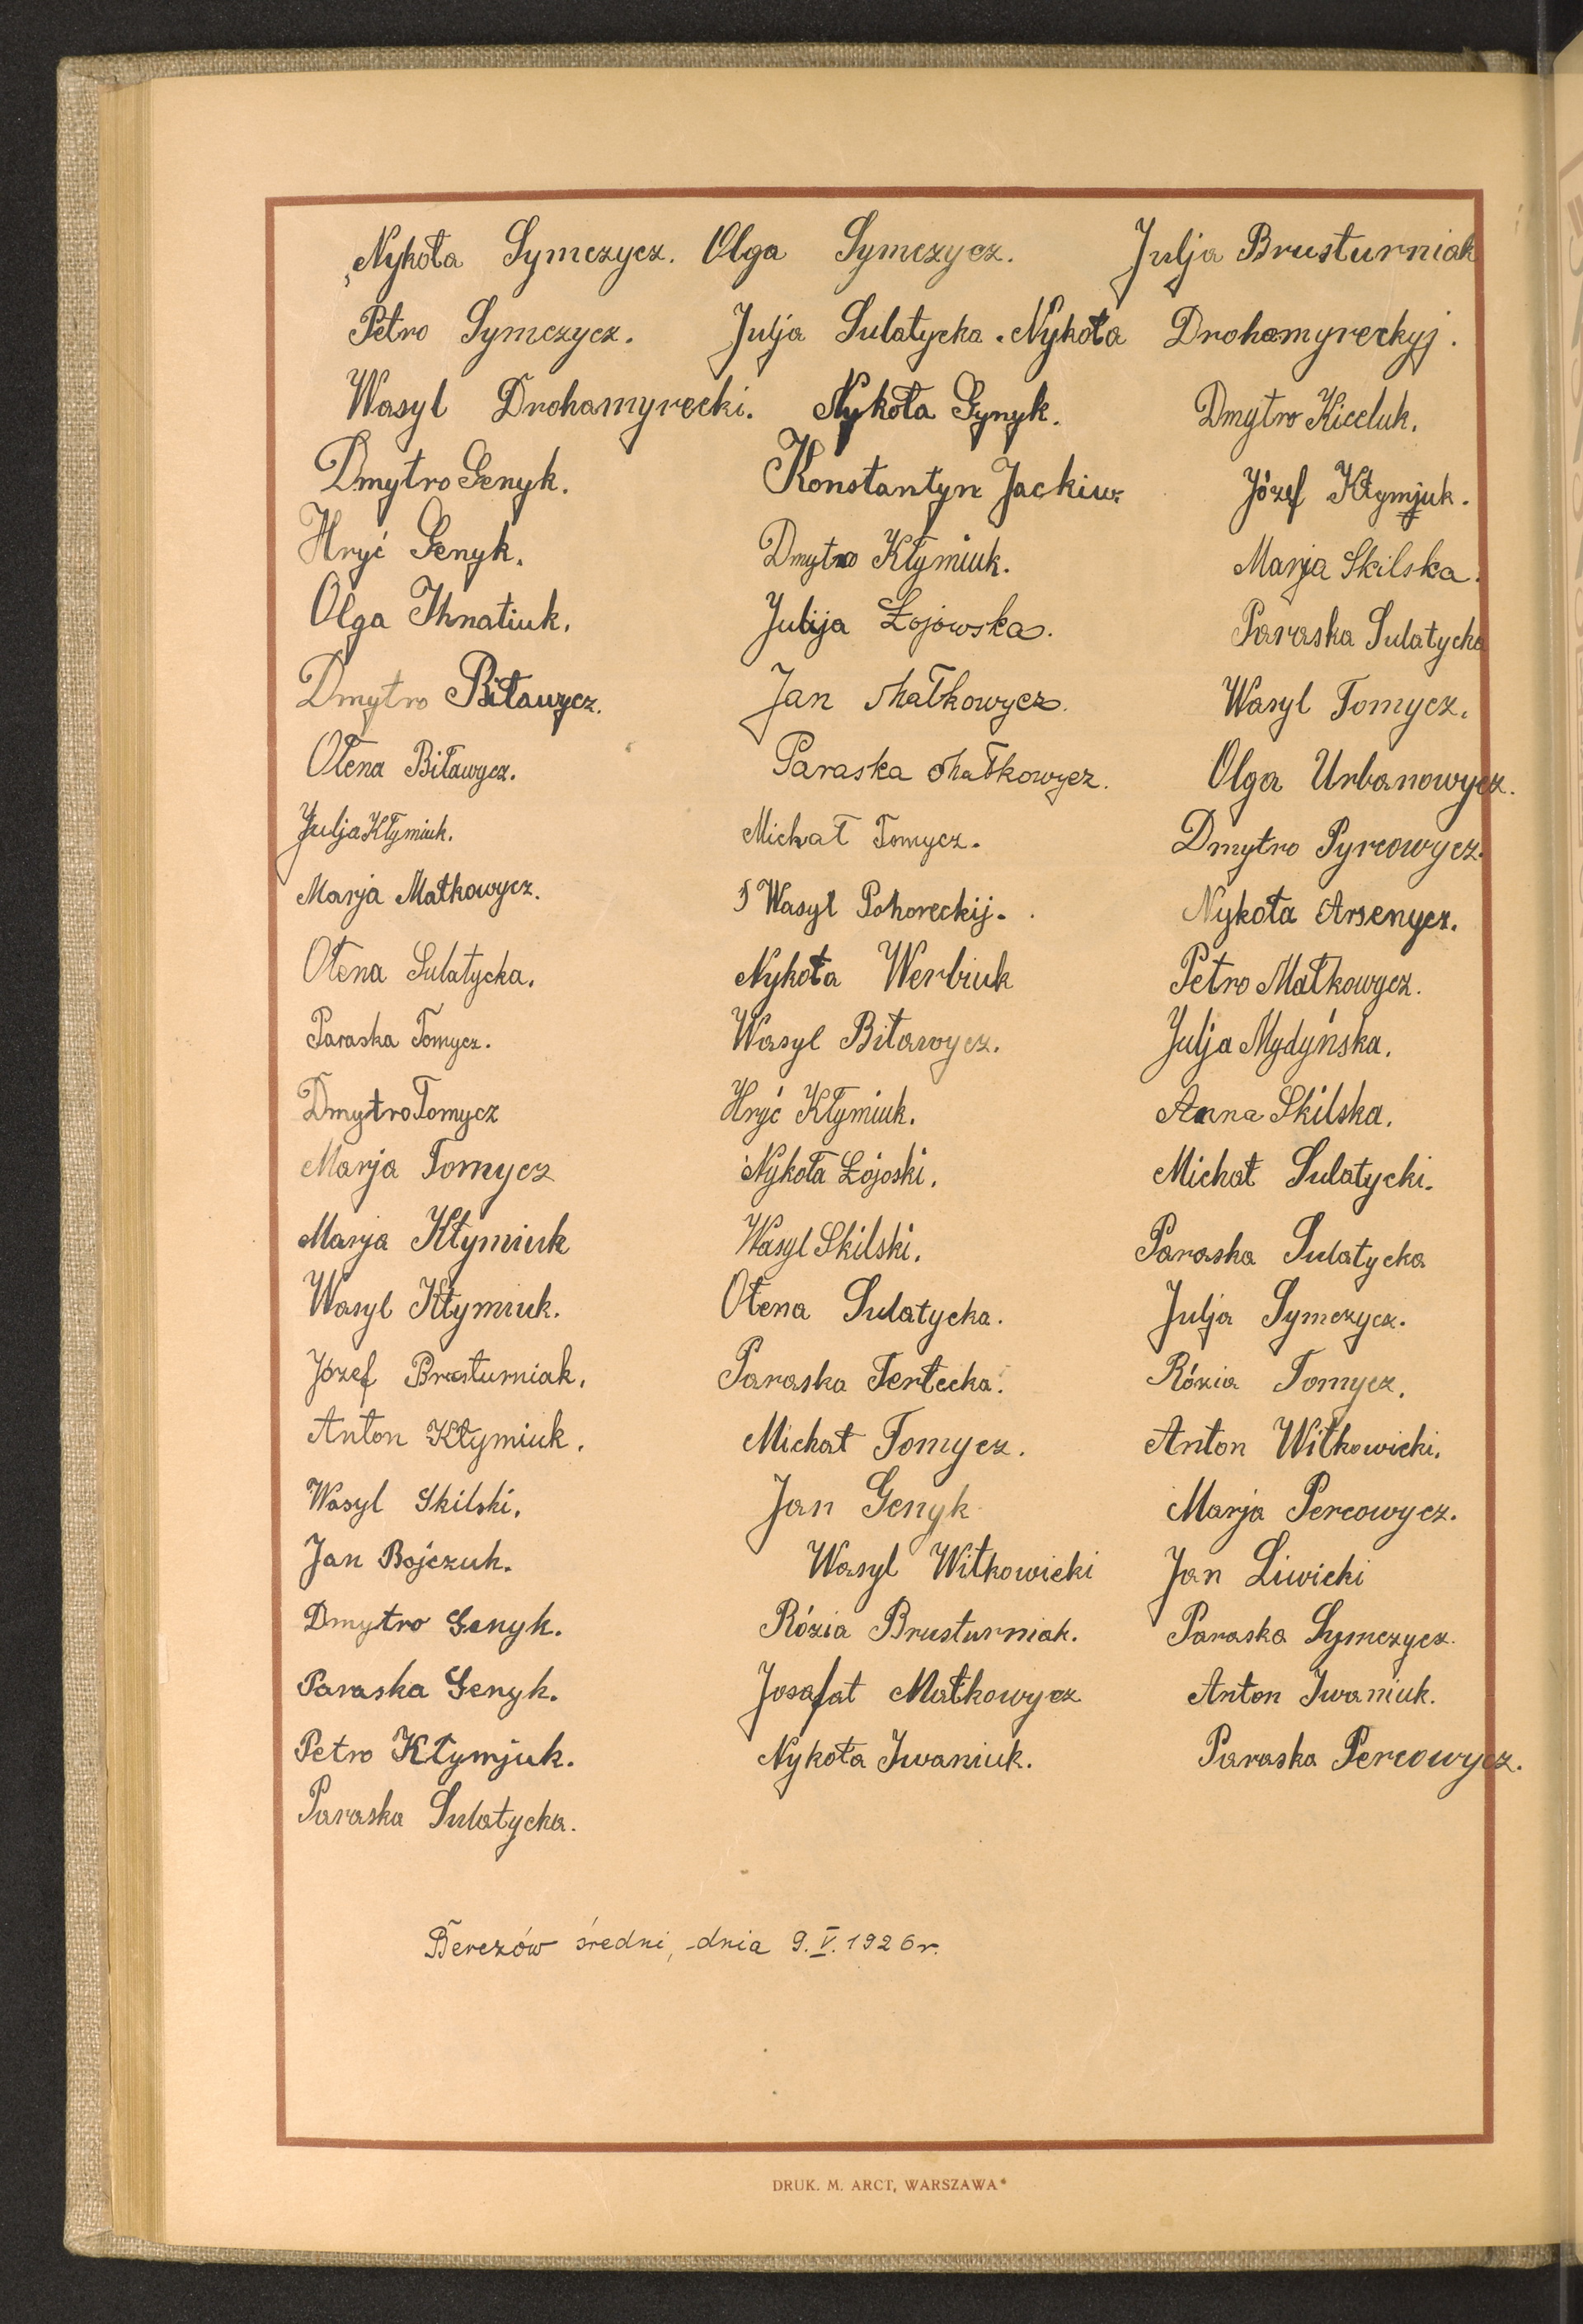 Nykoła Symczycz. Olga Symczycz. Julja Brusturniak
Petro Symczycz. Julja Sulatycka. Nykoła Drohomyreckyj.
Wasyl Drohomyrecki. Nykoła Gynyk. Dmytro Kiceluk.
Dmytro Genyk. Konstantyn Jackiw Józef Kłymjuk.
Hryć Genyk. Dmytro Kłymiuk. Marja Skilska.
Olga Ihnatiuk. Julija Łojowska. Paraska Sulatycka
Dmytro Biławycz. Jan Małkowycz. Wasyl Tomycz.
Ołena Biławycz. Paraska Małkowycz. Olga Urbanowycz.
Julja Kłymiuk. Michał Tomycz. Dmytro Pyrcowycz.
Marja Małkowycz. Wasyl Pohoreckij. Nykoła Arsenycz.
Ołena Sulatycka. Nykoła Werbiuk Petro Małkowycz.
Paraska Tomycz. Wasyl Biławycz. Julja Mydyńska.
Dmytro Tomycz Hryć Kłymiuk. Anna Skilska.
Marja Tomycz Nykoła Łojoski. Michał Sulatycki.
Marja Kłymiuk Wasyl Skilski. Paraska Sulatycka
Wasyl Kłymiuk. Ołena Sulatycka. Julja Symczycz.
Józef Brusturniak. Paraska Fertecka. Rózia Tomycz.
Anton Kłymiuk. Michał Tomycz. Anton Witkowicki.
Wasyl Skilski. Jan Genyk Marja Percowycz.
Jan Bojczuk. Wasyl Witkowicki Jan Liwicki
Dmytro Genyk. Rózia Brusturniak. Paraska Symczycz.
Paraska Genyk. Josafat Małkowycz Anton Iwaniuk.
Petro Kłymjuk. Nykoła Iwaniuk. Paraska Percowycz.
Paraska Sulatycka.
Berezów średni, dnia 9.V.1926r.
DRUK. M. ARCT, WARSZAWA*